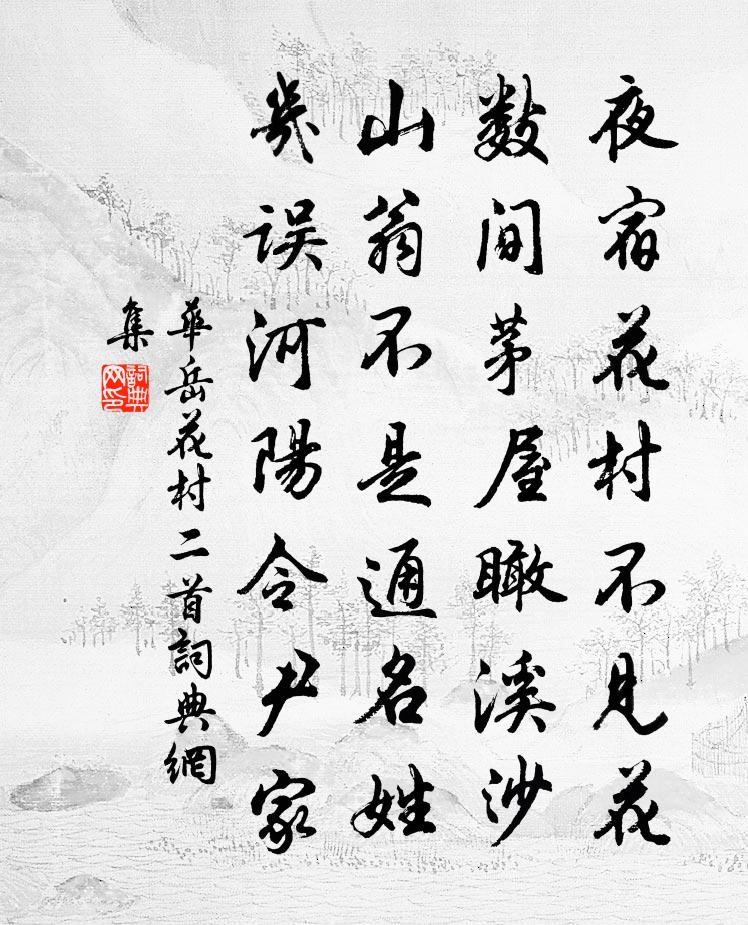 夜宿花村不见花
数间茅屋瞰溪沙
山翁不是通名姓
几误河陽令尹家
華岳花村二首詞典網
集
詞典
网印